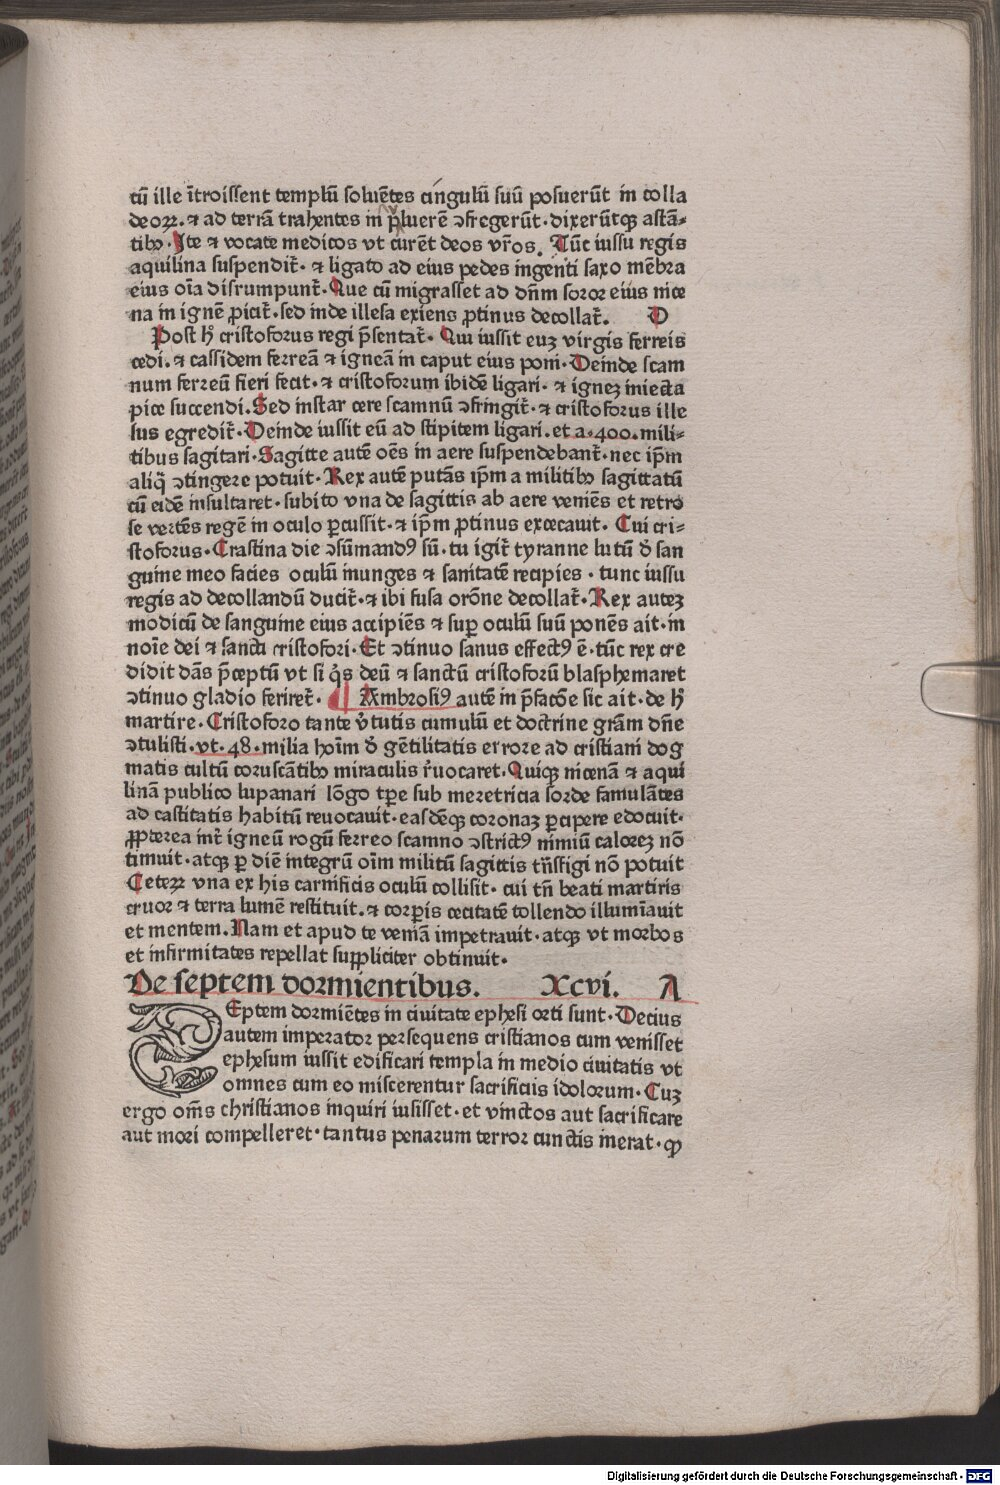 cū ille ītroissent templū soluētes cingulū suū posuerūt in colla
deoꝝ. ⁊ ad terrā trahentes in pͥluerē ↄfregerūt· dixerūtqꝫ astā-
tibꝰ· Ite ⁊ vocate medicos vt curēt deos vr̄os. Tūc iussu regis
aquilina suspendit̄· ⁊ ligato ad eius pedes ingenti saxo mēbra
eius oīa disrumpunt̄· Que cū migrasset ad dn̄m soror eius nice
na in ignē ꝓicit̄· sed inde illesa exiens ꝓtinus decollat̄. D
Post h̄ cristoforus regi p̄sentat̄· Qui iussit euꝫ virgis ferreis
cedi. ⁊ cassidem ferreā ⁊ igneā in caput eius poni· Deinde scam
num ferreū fieri fecit· ⁊ cristoforum ibidē ligari· ⁊ igneꝫ iniecta
pice succendi. Sed instar cere scamnū ↄfringit̄· ⁊ cristoforus ille
sus egredit̄· Deinde iussit eū ad stipitem ligari. et a· 400. mili-
tibus sagitari· Sagitte autē oēs in aere suspendebant̄· nec ip̄m
aliq̄ ↄtingere potuit· Rex autē putās ip̄m a militibꝰ sagittatū
cū eidē insultaret· subito vna de sagittis ab aere veniēs et retro
se vertēs regē in oculo ꝑcussit· ⁊ ip̄m ꝓtinus excecauit. Cui cri-
stoforus· Crastina die ↄsūmandꝰ sū· tu igit̄ tyranne lutū d̄ san
guine meo facies oculū inunges ⁊ sanitatē recipies · tunc iussu
regis ad decollandū ducit̄· ⁊ ibi fusa orōne decollat̄· Rex auteꝫ
modicū de sanguine eius accipiēs ⁊ suꝑ oculū suū ponēs ait· in
noīe dei ⁊ sancti cristofori· Et ↄtinuo sanus effectꝰ ē· tūc rex cre
didit dās p̄ceptū vt si q̇s deū ⁊ sanctū cristoforū blasphemaret
ↄtinuo gladio feriret̄· ¶ Ambrosiꝰ autē in p̄facōe sic ait· de h̄
martire· Cristoforo tante v̄tutis cumulū et doctrine grām dn̄e
ↄtulisti· vt· 48· milia hoīm d̄ gētilitatis errore ad cristiani dog
matis cultū coruscātibꝰ miraculis r̄uocaret· Quiqꝫ nicenā ⁊ aqui
linā publico lupanari lōgo tꝑe sub meretricia sorde famulātes
ad castitatis habitū reuocauit· easdēqꝫ coronaꝫ ꝑcipere edocuit·
ꝓpterea int̄ igneū rogū ferreo scamno ↄstrictꝰ nimiū caloreꝫ nō
timuit· atqꝫ ꝑ diē integrū oīm militū sagittis tn̄sfigi nō potuit
Ceteꝝ vna ex his carnificis oculū collisit· cui tn̄ beati martiris
cruor ⁊ terra lumē restituit· ⁊ corꝑis cecitatē tollendo illumīauit
et mentem. Nam et apud te veniā impetrauit· atqꝫ vt morbos
et infirmitates repellat suppliciter obtinuit·
De septem dormientibus. Xcvi. A
SEptem dormiētes in ciuitate ephesi orti sunt· Decius
autem imperator persequens cristianos cum venisset
ephesum iussit edificari templa in medio ciuitatis vt
omnes cum eo miscerentur sacrificiis idolorum· Cuꝫ
ergo om̄s christianos inquiri iusisset· et vinctos aut sacrificare
aut mori compelleret· tantus penarum terror cunctis inerat· ꝙ
Digitalisierung gefördert durch die Deutsche Forschungsgemeinschaft - DFG